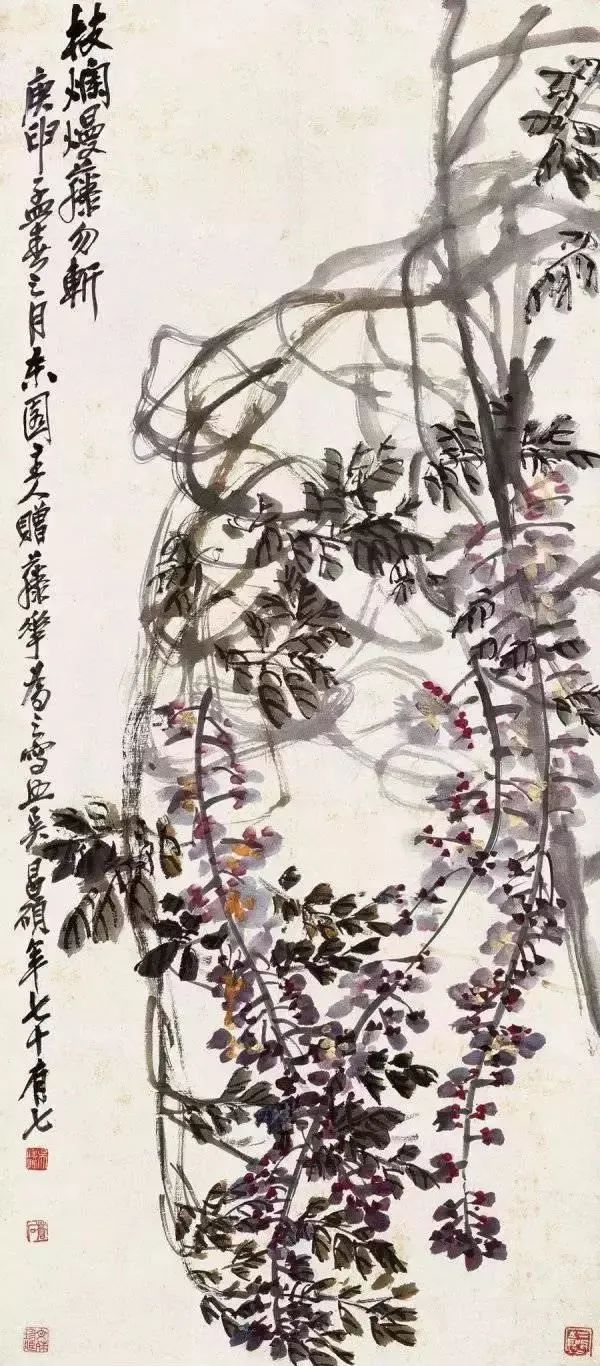 枝爛熳藤勿斬
庚申孟春之月東園主人贈藤華為之寫此吳昌碩年七十有七